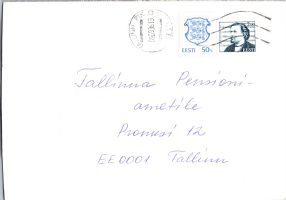 EESTI 50s
EESTI
Tallinna Pensioni-
ametile
Pronksi 12
EE0001 Tallinn